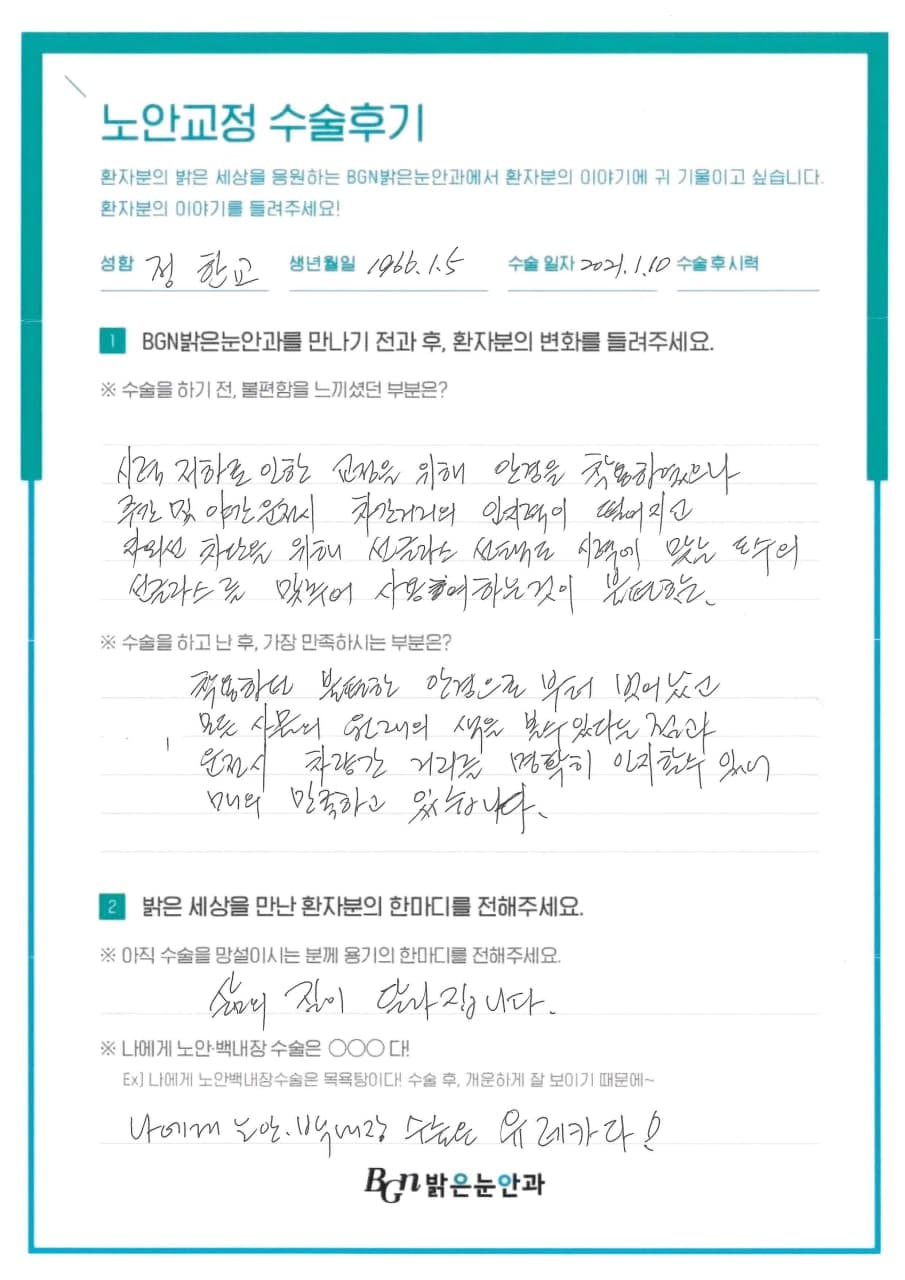 노안교정 수술후기
환자분의 밝은 세상을 응원하는 BGN밝은눈안과에서 환자분의 이야기에 귀 기울이고 싶습니다.
환자분의 이야기를 들려주세요!
성함 정 한교 생년월일 1966.1.5 수술 일자 2021.1.10 수술 후 시력
1 BGN밝은눈안과를 만나기 전과 후, 환자분의 변화를 들려주세요.
※ 수술을 하기 전, 불편함을 느끼셨던 부분은?
시력 저하로 인한 교정을 위해 안경을 착용하였으나
주간 및 야간운전시 차간거리의 인지력이 떨어지고
자외선 차단을 위해 선글라스 선택도 시력에 맞는 도수의
선글라스를 맞추어 사용하여하는것이 불편했는.
※ 수술을 하고 난 후, 가장 만족하시는 부분은?
착용하던 불편한 안경으로 부터 벗어났고
모든 사물의 원래의 색을 볼수있다는 점과
운전시 차량간 거리를 명확히 인지할수 있어
매우 만족하고 있습니다.
2 밝은 세상을 만난 환자분의 한마디를 전해주세요.
※ 아직 수술을 망설이시는 분께 용기의 한마디를 전해주세요.
삶의 질이 달라집니다.
※ 나에게 노안·백내장 수술은 ○○○ 다!
Ex) 나에게 노안백내장수술은 목욕탕이다! 수술 후, 개운하게 잘 보이기 때문에~
나에게 노안.백내장 수술은 유레카다!
BGN 밝은눈안과